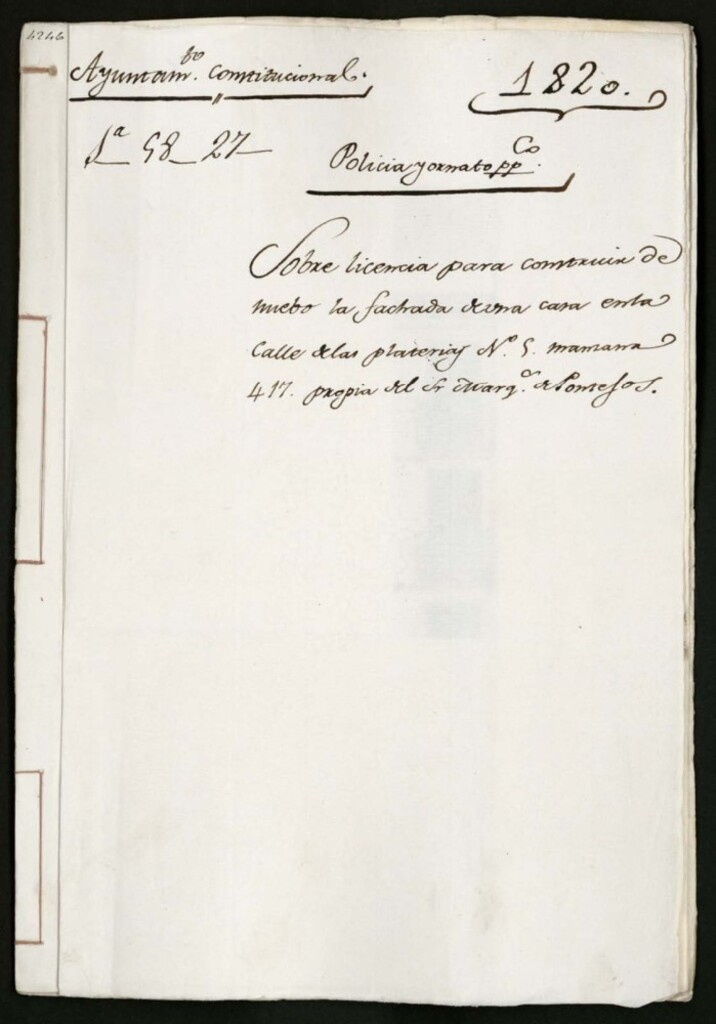 4246
Ayuntam.to Constitucional.
1820.
1a_58_27_
Policia y ornato pp.co
Sobre licencia para construir de
nuebo la fachada de una casa en la
Calle de las platerias N.o 5. manzana
417. propia del Sr Marq.s de Pontejos.